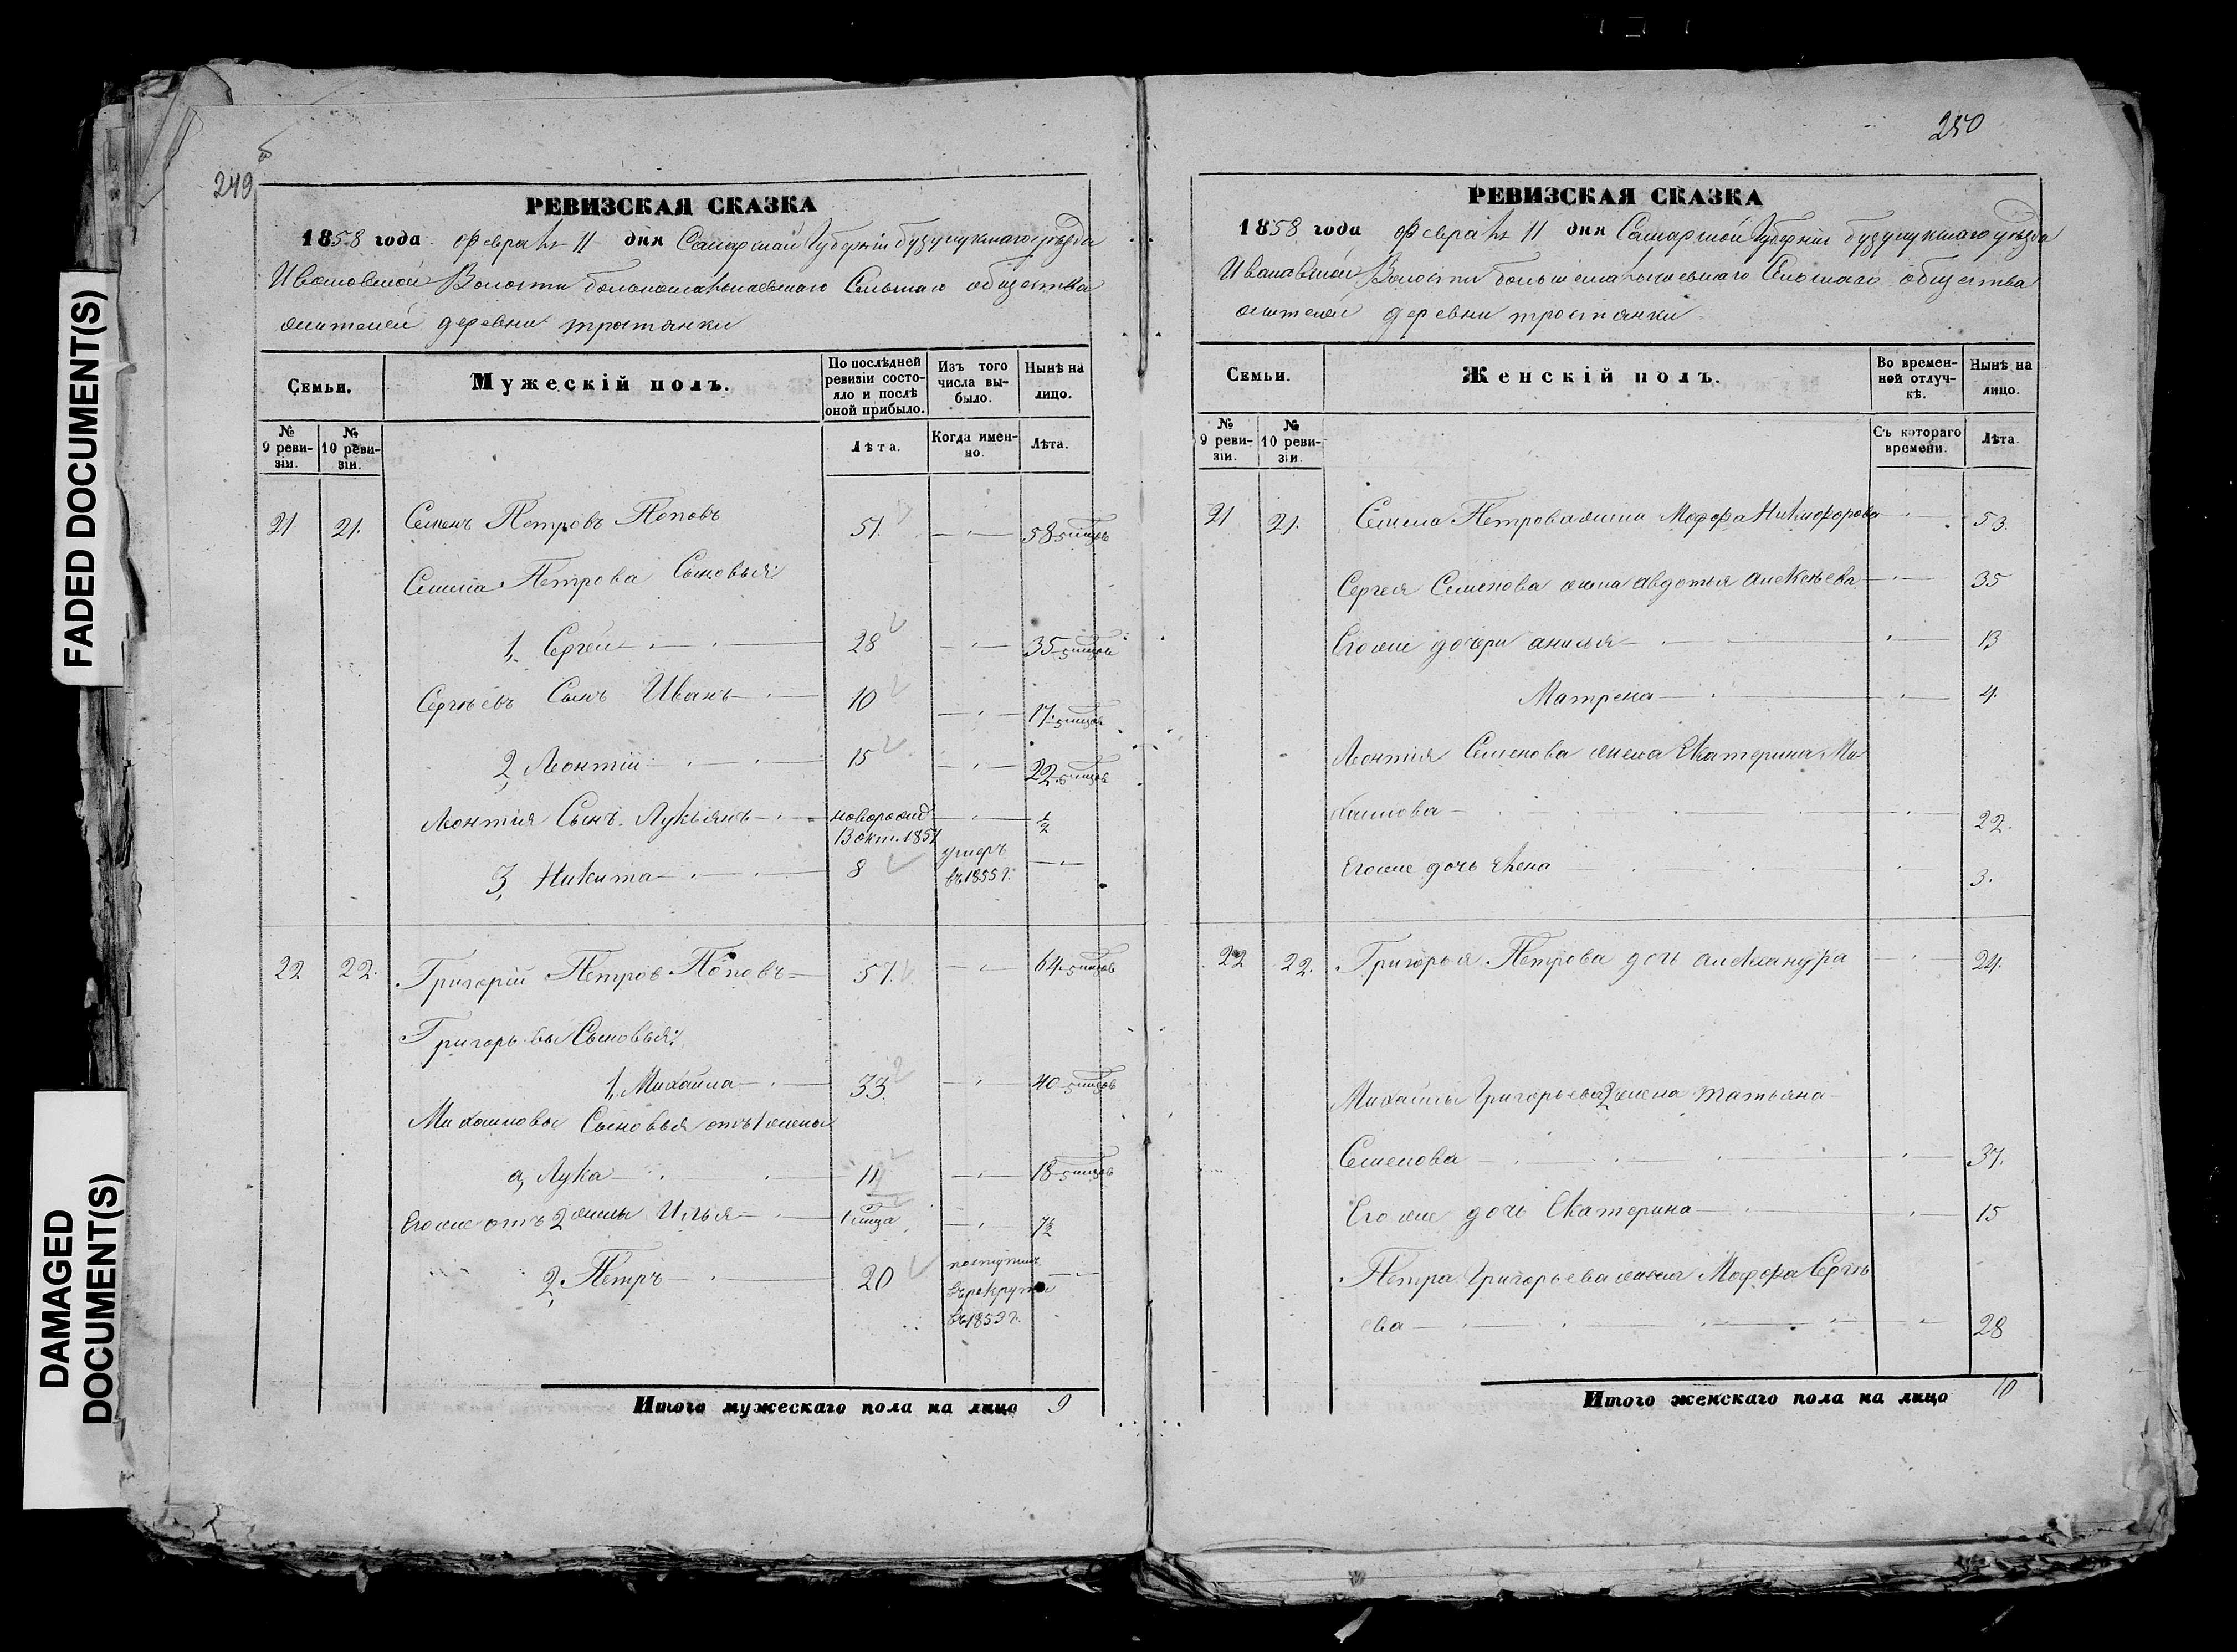 FADED DOCUMENT(S)
DAMAGED
DOCUMENT(S)
249
РЕВИЗСКАЯ СКАЗКА
1858 года февраля 11 дня Самарской Губернiи бузулукскаго уѣзда
Ивановской Волости Сельскаго общества
жителей деревни тростянки
Семьи.
Мужескiй полъ.
По послѣдней
ревизiи состо-
яло и послѣ
оной прибыло.
Изъ того
числа вы-
было.
Нынѣ на
лицо.
№
9 реви-
зiи.
№
10 реви-
зiи.
Лѣта.
Когда имен-
но.
Лѣта.
21. 21. Семенъ Петровъ Поповъ 51. 58
Семена Петрова Сыновья:
1, Сергей 28 35
Сергѣевъ Сынъ Иванъ 10 17
2, Леонтiй 15 22
Леонтiя Сынъ Лукьянъ новорожд 1/2
13 окт. 1857
3, Никита 8 умеръ
въ 1855 г.
22 22. Григорiй Петровъ Поповъ 57. 64
Григорьевы Сыновья:
1, Михайла 33. 40
Михайловы Сыновья отъ 1 жены
а, Лука 11 18
Его же отъ 2 жены Илья 7 1/2
2, Петръ 20 поступилъ
въ рекруты
въ 1853 г.
Итого мужескаго пола на лицо 9
250
РЕВИЗСКАЯ СКАЗКА
1858 года февраля 11 дня Самарской Губернiи бузулукскаго уѣзда
Ивановской Волости Сельскаго общества
жителей деревни тростянки
Семьи.
Женскiй полъ.
Во времен-
ной отлуч-
кѣ.
Нынѣ на
лицо.
№
9 реви-
зiи.
№
10 реви-
зiи.
Съ котораго
времени.
Лѣта.
21 21. Семена Петрова жена Марфа Никифорова 53.
Сергея Семенова жена авдотья алексѣева 35
Его же дочери анисья 13
Матрена 4.
Леонтiя Семенова жена Екатерина Ми
хайлова 22.
Его же дочь Елена 3.
22 22. Григорья Петрова дочь александра 24.
Михайлы Григорьева 2 жена татьяна
Семенова 37.
Его же дочь Екатерина 15
Петра Григорьева жена Марфа Сергѣ
ева 28
Итого женскаго пола на лицо 10